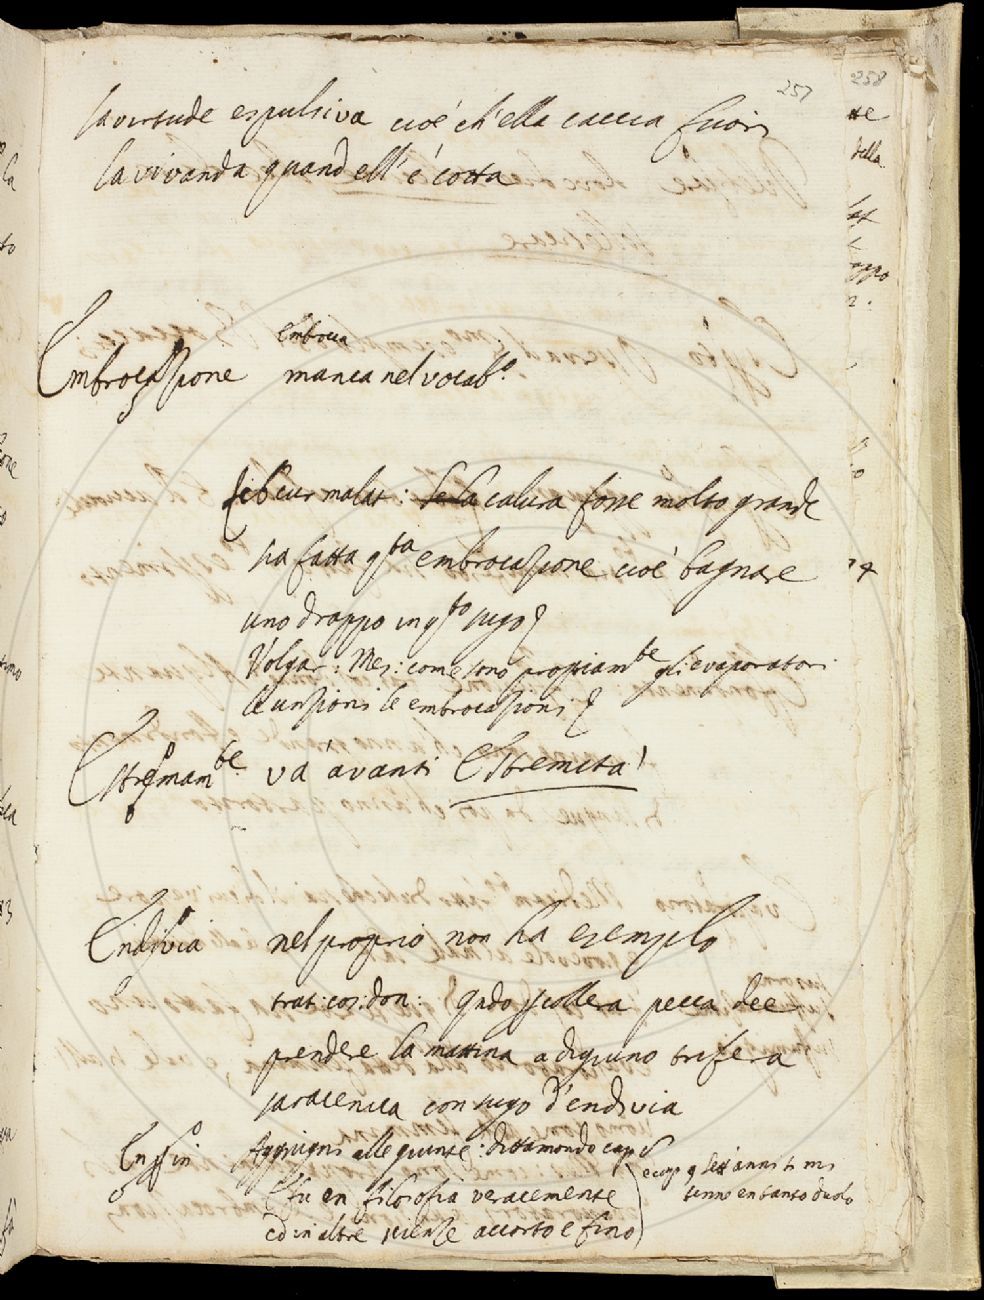 257
258
la virtude espulsiva cioè ch'ella caccia fuori
la vivanda quand ell' è cotta
Embroca
Embrocazione manca nel vocab.º
lib cur malat: se la calura fosse molto grande
sia fatta q.ta embrocazione cioè bagnare
uno drappo in q.to sugo
Volgar: Mes: come sono propriam.te gli evaporatori
le unzioni le embrocazioni
Estremam.te và avanti Estremità
Endivia nel proprio non ha esempio
trat: cos: don: q.ndo collera pecca dee
prendere la mattina a digiuno trifera
saracenica con sugo d'endivia
En Aggiugni alle giunte: dittamondo cap
E fu en filosofia veracemente
ed in altre scienze accorto e fino
sett'anni
senno en tanto duolo